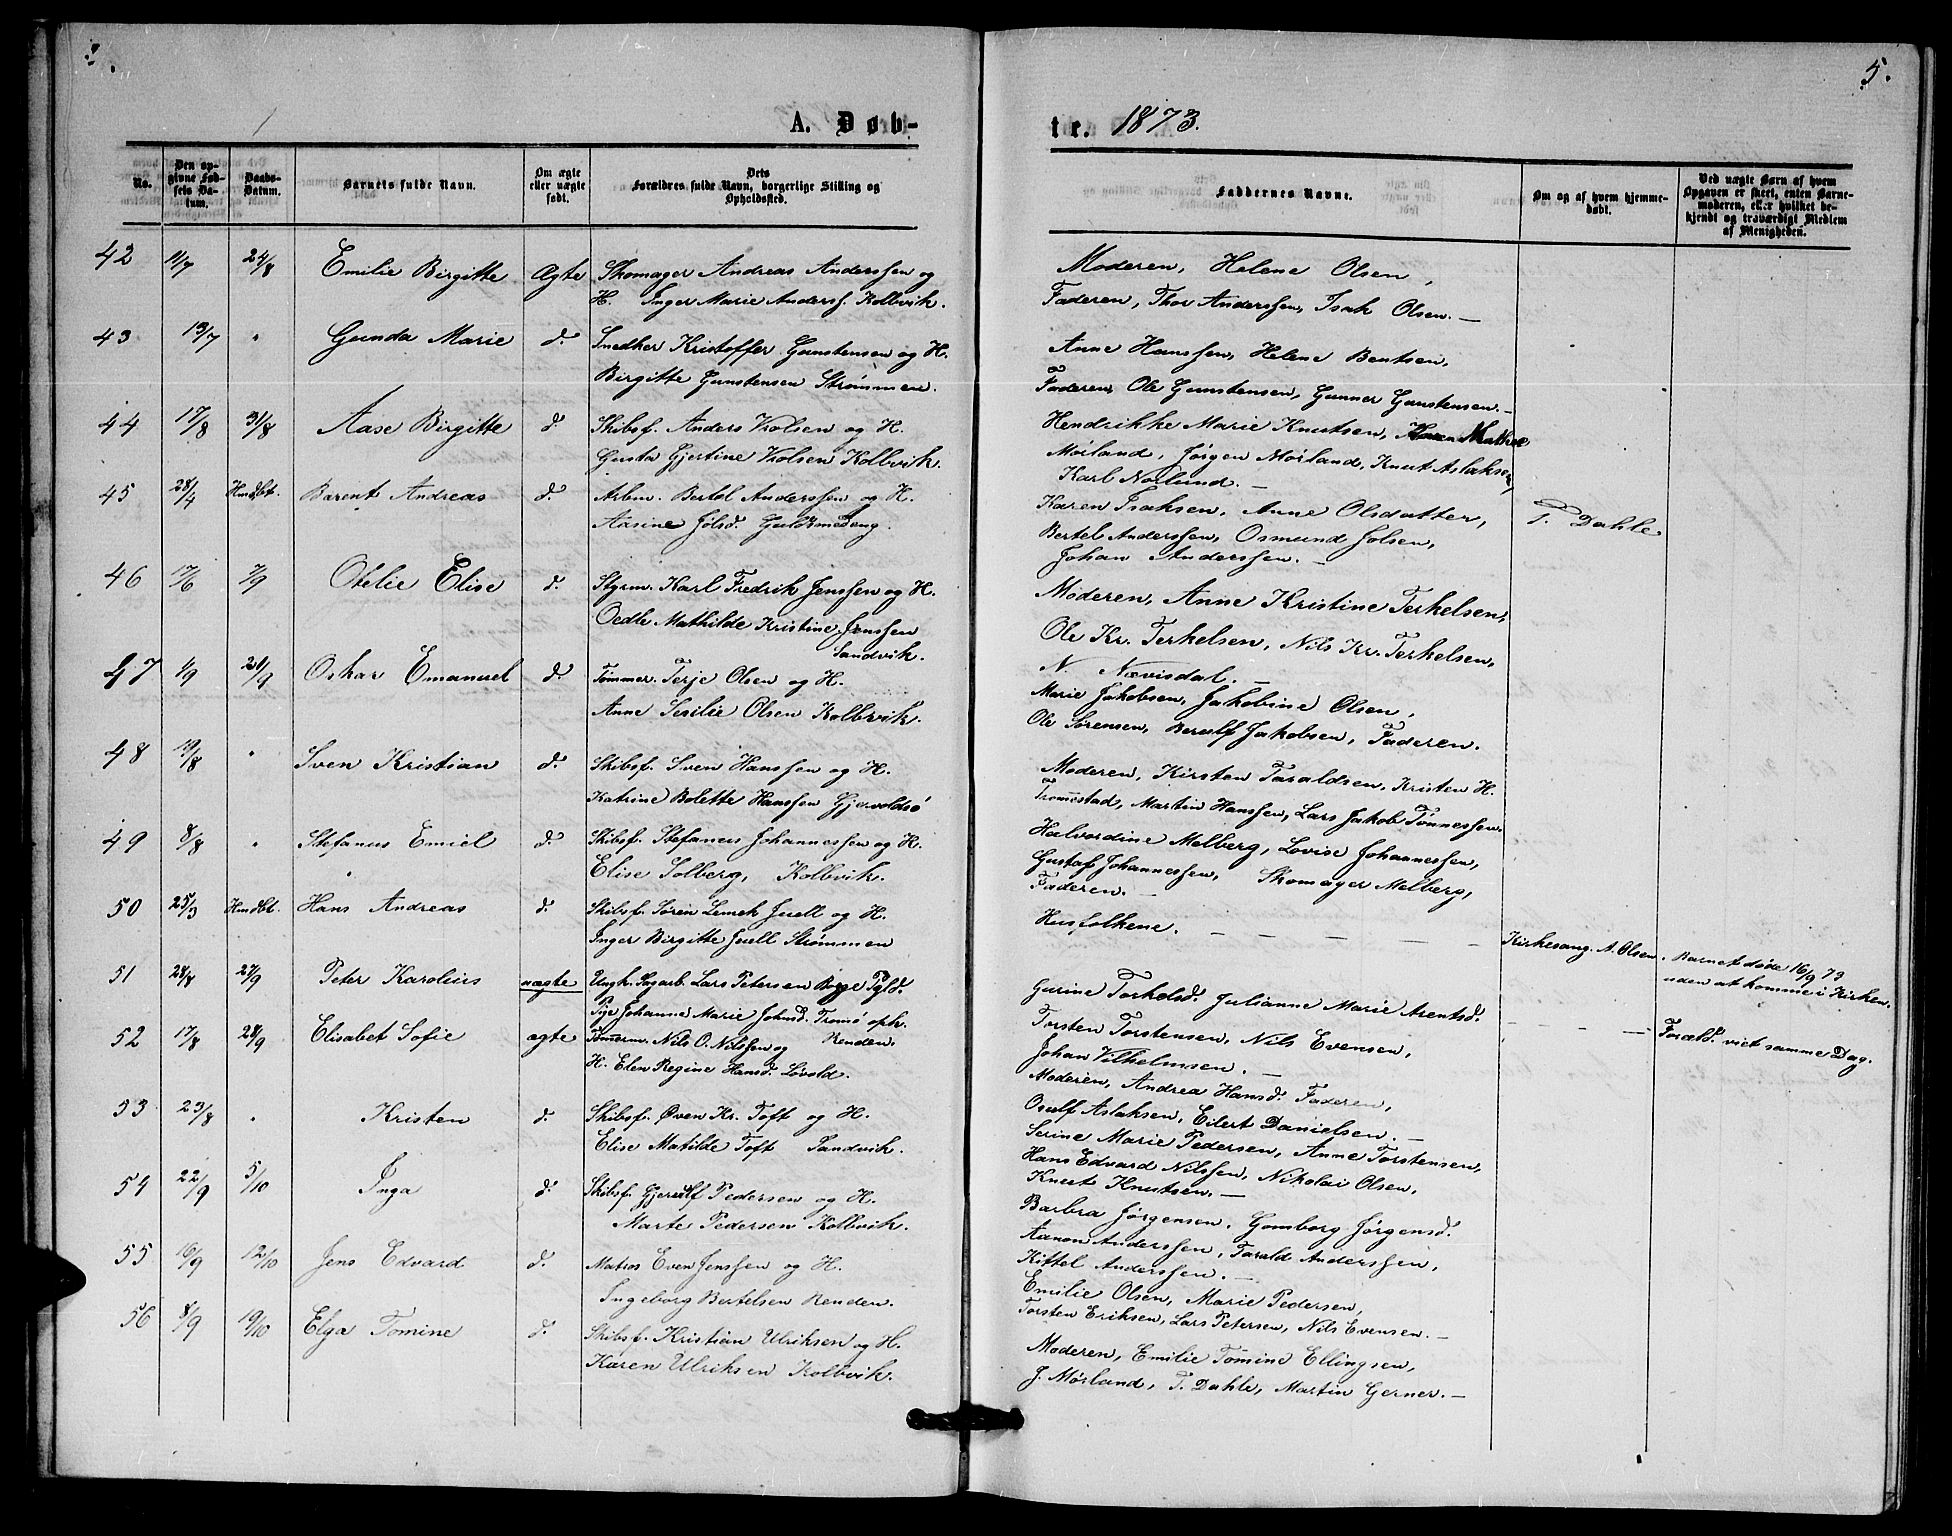 A. Døb-
No.
Den opgivne Fødsels Datum.
Daabs-Datum.
Barnets fulde Navn.
Om ægte eller uægte født.
Dets Forældres fulde Navn, borgerlige Stilling og Opholdssted.
42 11/7 24/8 Emilie Birgitte Ægte Skomager Andreas Anderssen og
H. Inger Marie Anderss. Kolbvik.
43 13/7 " Gunda Marie d. Snedker Kristoffer Gunstensen og H.
Birgitte Gunstensen Strømmen.
44 17/8 31/8 Aase Birgitte d. Skibsf. Anders Olsen og H.
Gusta Gjertine Olsen Kolbvik.
45 28/4 Hmdbt. Barent Andreas d. Arbm. Bertel Anderssen og H.
Aasine Jølsd. Guldsmedeng.
46 17/6 7/9 Otelie Elise d. Styrm. Karl Fredrik Jenssen og H.
Oedle Mathilde Kristine Jenssen
Sandvik.
47 1/9 21/9 Oskar Emanuel d. Tømmer. Terje Olsen og H.
Anne Serilie Olsen Kolbvik.
48 19/8 " Sven Kristian d. Skibsf. Sven Hanssen og H.
Katrine Bolette Hanssen Gjervoldsø
49 8/8 " Stefanus Emiel d. Skibsf. Stefanus Johannessen og H.
Elise Solberg, Kolbvik.
50 25/3 Hmdbt. Hans Andreas d. Skibsf. Søren Lemek Juell og H.
Inger Birgitte Juell Strømmen
51 28/8 27/9 Peter Karolius uægte Ungk. Sagarb. Lars Petersen
Pige Johanne Marie Johnsd. Tromø oph.
Renden.
52 17/8 28/9 Elisabet Sofie ægte Tømerm. Nils O. Nilssen og
H. Elen Regine Hansd. Løvold.
53 23/8 " Kristen d. Skibsf. Øven Kr. Toft og H.
Elise Matilde Toft Sandvik.
54 22/9 5/10 Inga d. Skibsf. Gjerulf Pedersen og H.
Marte Pedersen Kolbvik.
55 16/9 12/10 Jens Edvard d. Matros Even Jenssen og H.
Ingeborg Bertelsen Renden.
56 8/9 19/10 Elga Tomine d. Skibsf. Kristian Ulriksen og H.
Karen Ulriksen Kolbvik.
5.
te. 1873.
Faddernes Navne.
Om og af hvem hjemmedøbt.
Ved uægte Børn af hvem Opgaven er skeet, enten Barnemoderen, eller hvilket bekjendt og troværdigt Medlem af Menigheden.
Moderen, Helene Olsen,
Faderen, Thor Anderssen, Isak Olsen. —
Anne Hanssen, Helene Bentsen,
Faderen, Ole Gunstensen, Gunner Gunstensen. —
Hendrikke Marie Knutsen,
Mørland, Jørgen Mørland, Knut Aslaksen,
Karl Nølund. —
Karen Isaksen, Anne Olsdatter, T. Dahle
Bertel Anderssen, Osmund Jølsen,
Johan Anderssen. —
Moderen, Anne Kristine Terkelsen,
Ole Kr. Terkelsen, Nils Kr. Terkelsen,
N. Nævisdal. —
Marie Jakobsen, Jakobine Olsen,
Ole Sørensen, Berulf Jakobsen, Faderen.
Moderen, Kirsten Taraldsen, Kristen H.
Tromestad, Martin Hanssen, Lars Jakob Tønnessen.
Halvordine Melberg, Lovise Johannessen,
Gustaf Johannessen, Skomager Melberg,
Faderen. —
Husfolkene. — — — — — Kirkesang. A. Olsen. Barnet døde 16/9 73
uden at komme i Kirken.
Gurine Torkelsd. Julianne Marie Arentsd.
Torsten Torstensen, Nils Evensen, — — — — Foræld. viet samme Dag.
Johan Vilhelmsen. —
Moderen, Andrea Hansd. Faderen,
Osulf Aslaksen, Eilert Danielsen. —
Serine Marie Pedersen, Anne Torstensen,
Hans Edvard Nilssen, Nikolai Olsen,
Knut Knutsen. —
Barbra Jørgensen, Gomborg Jørgensd.
Aanon Anderssen, Tarald Anderssen,
Kittel Anderssen. —
Emilie Olsen, Marie Pedersen,
Torsten Eriksen, Lars Petersen, Nils Evensen. —
Moderen, Emilie Tomine Ellingsen,
J. Mørland, T. Dahle, Martin Gerner. —